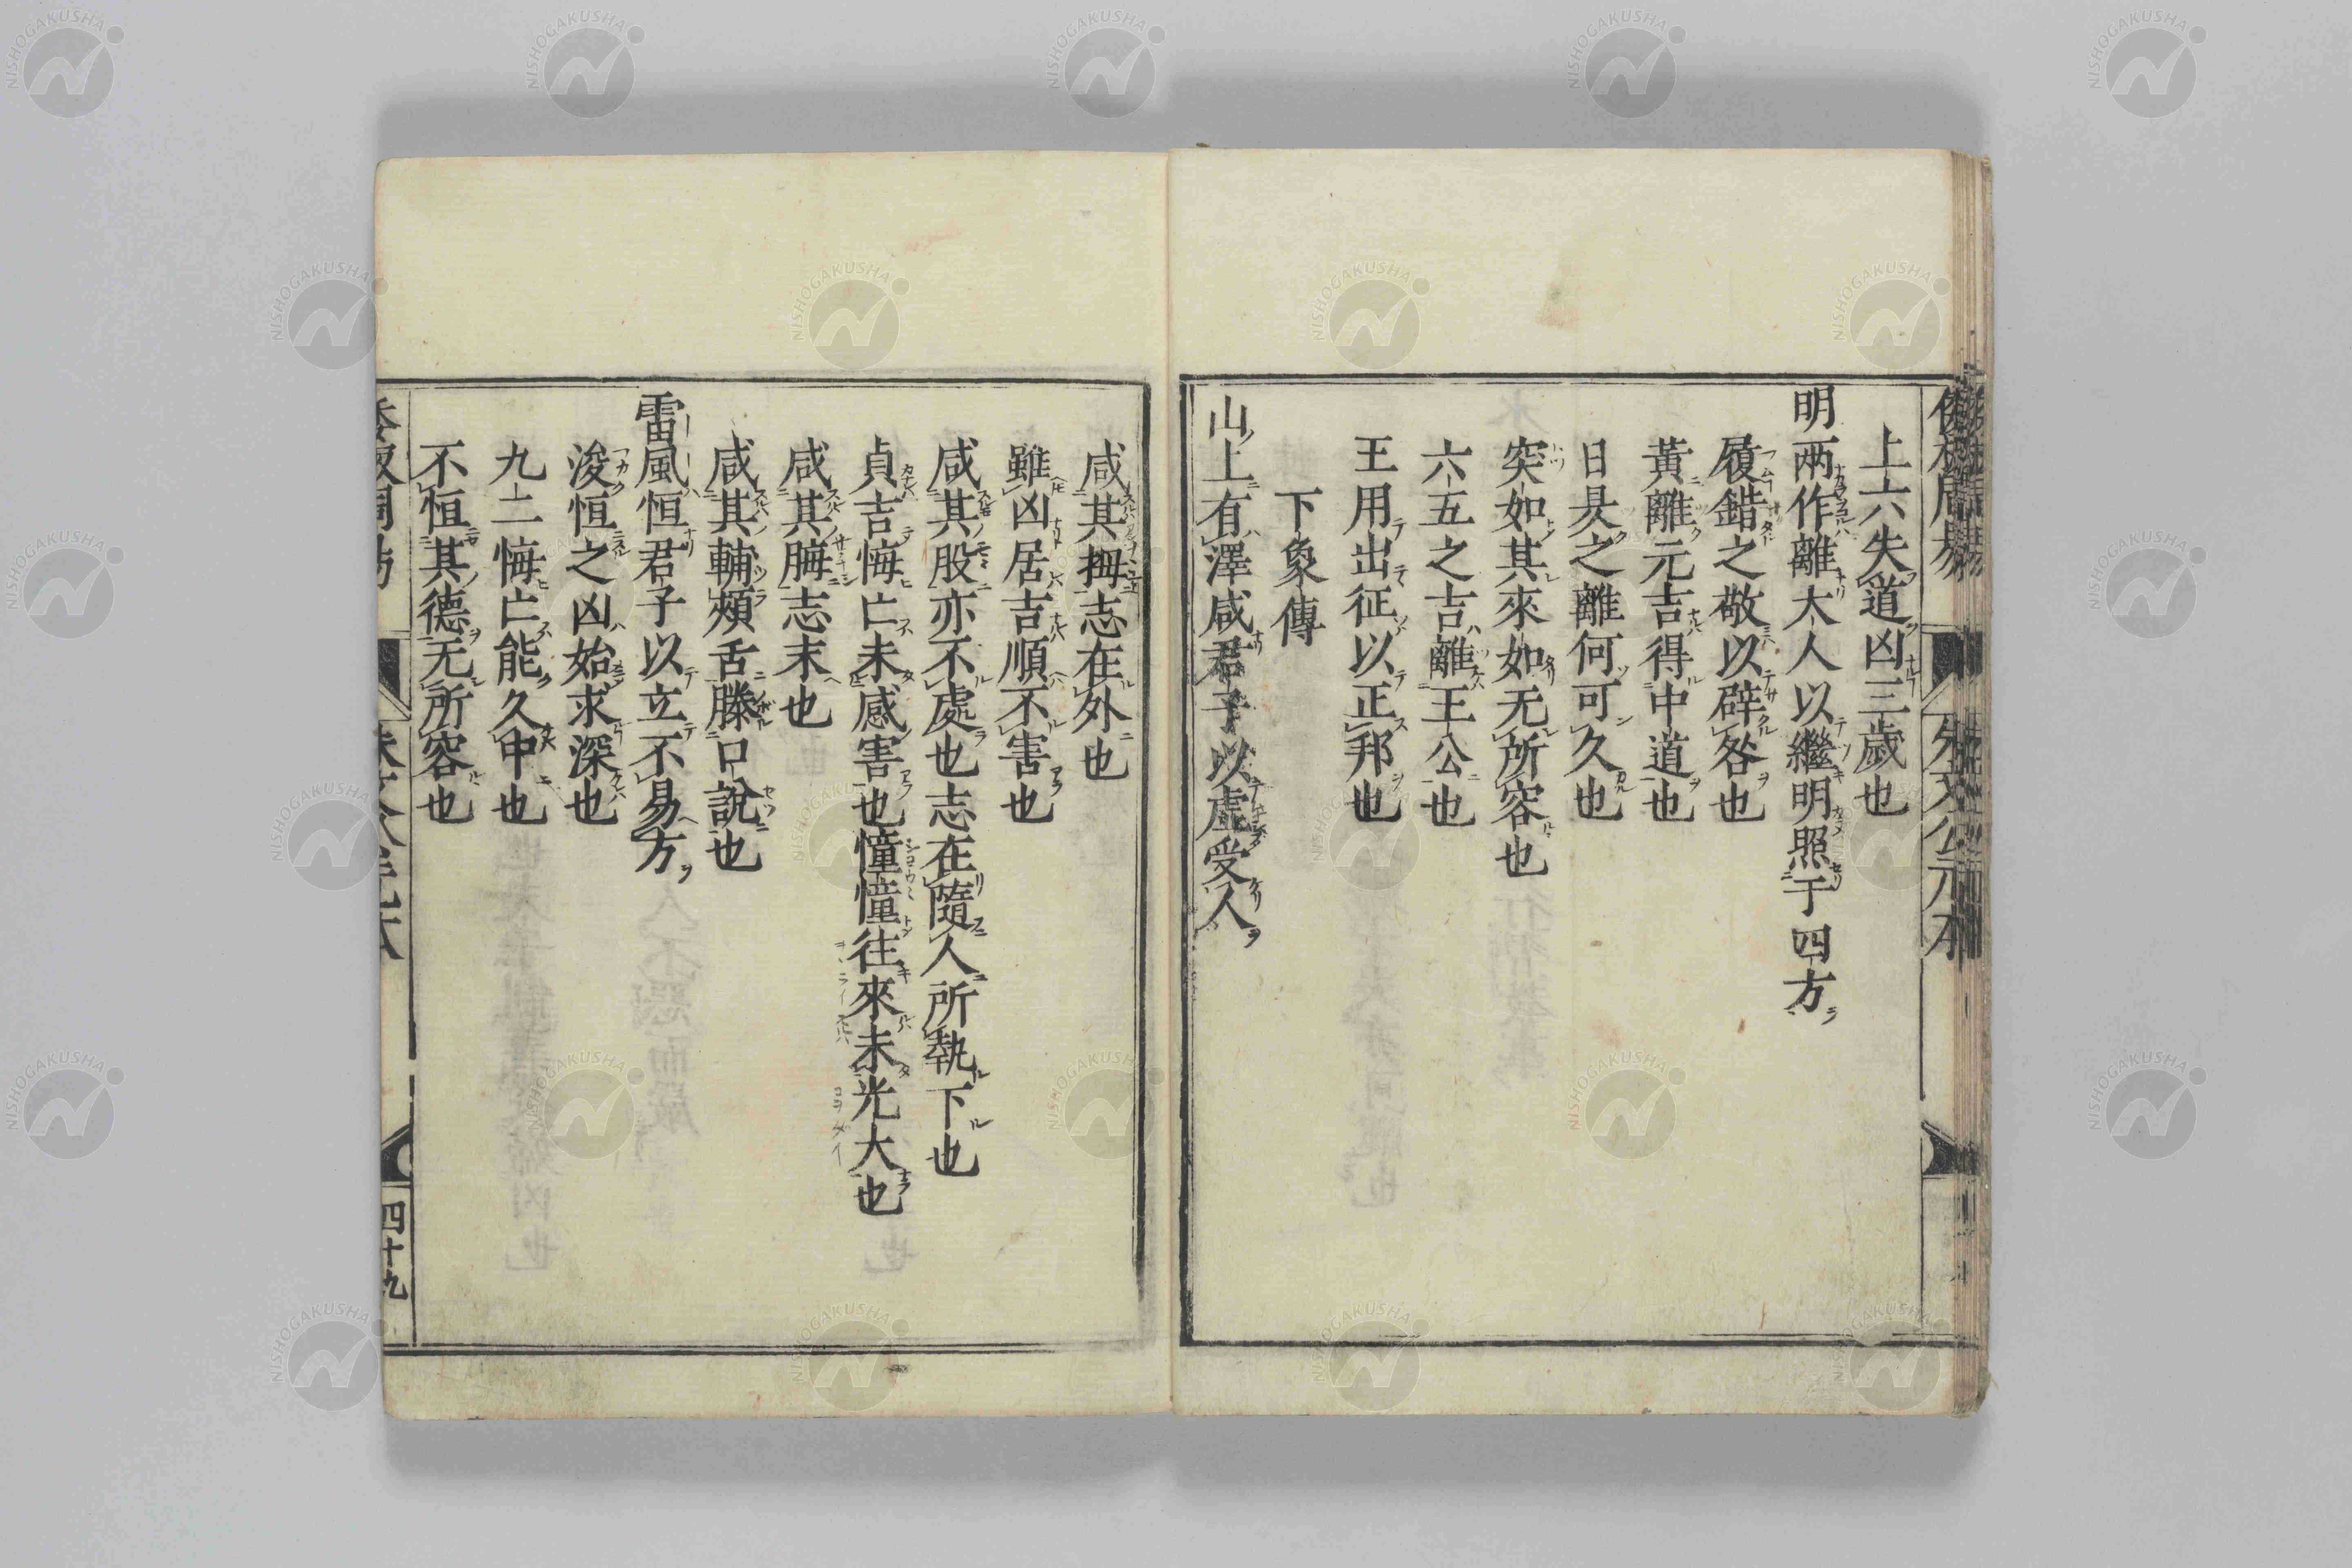 上六失道凶三歲也
明兩作離大人以繼明照于四方
履錯之敬以辟咎也
黃離元吉得中道也
日昃之離何可久也
突如其來如无所容也
六五之吉離王公也
王用出征以正邦也
下象傳
山上有澤咸君子以虛受人
咸其拇志在外也
雖凶居吉順不害也
咸其股亦不處也志在隨人所執下也
貞吉悔亡未感害也憧憧往來未光大也
咸其脢志末也
咸其輔頰舌滕口說也
雷風恒君子以立不易方
浚恒之凶始求深也
九二悔亡能久中也
不恒其德无所容也
四十九
NISHOGAKUSHA